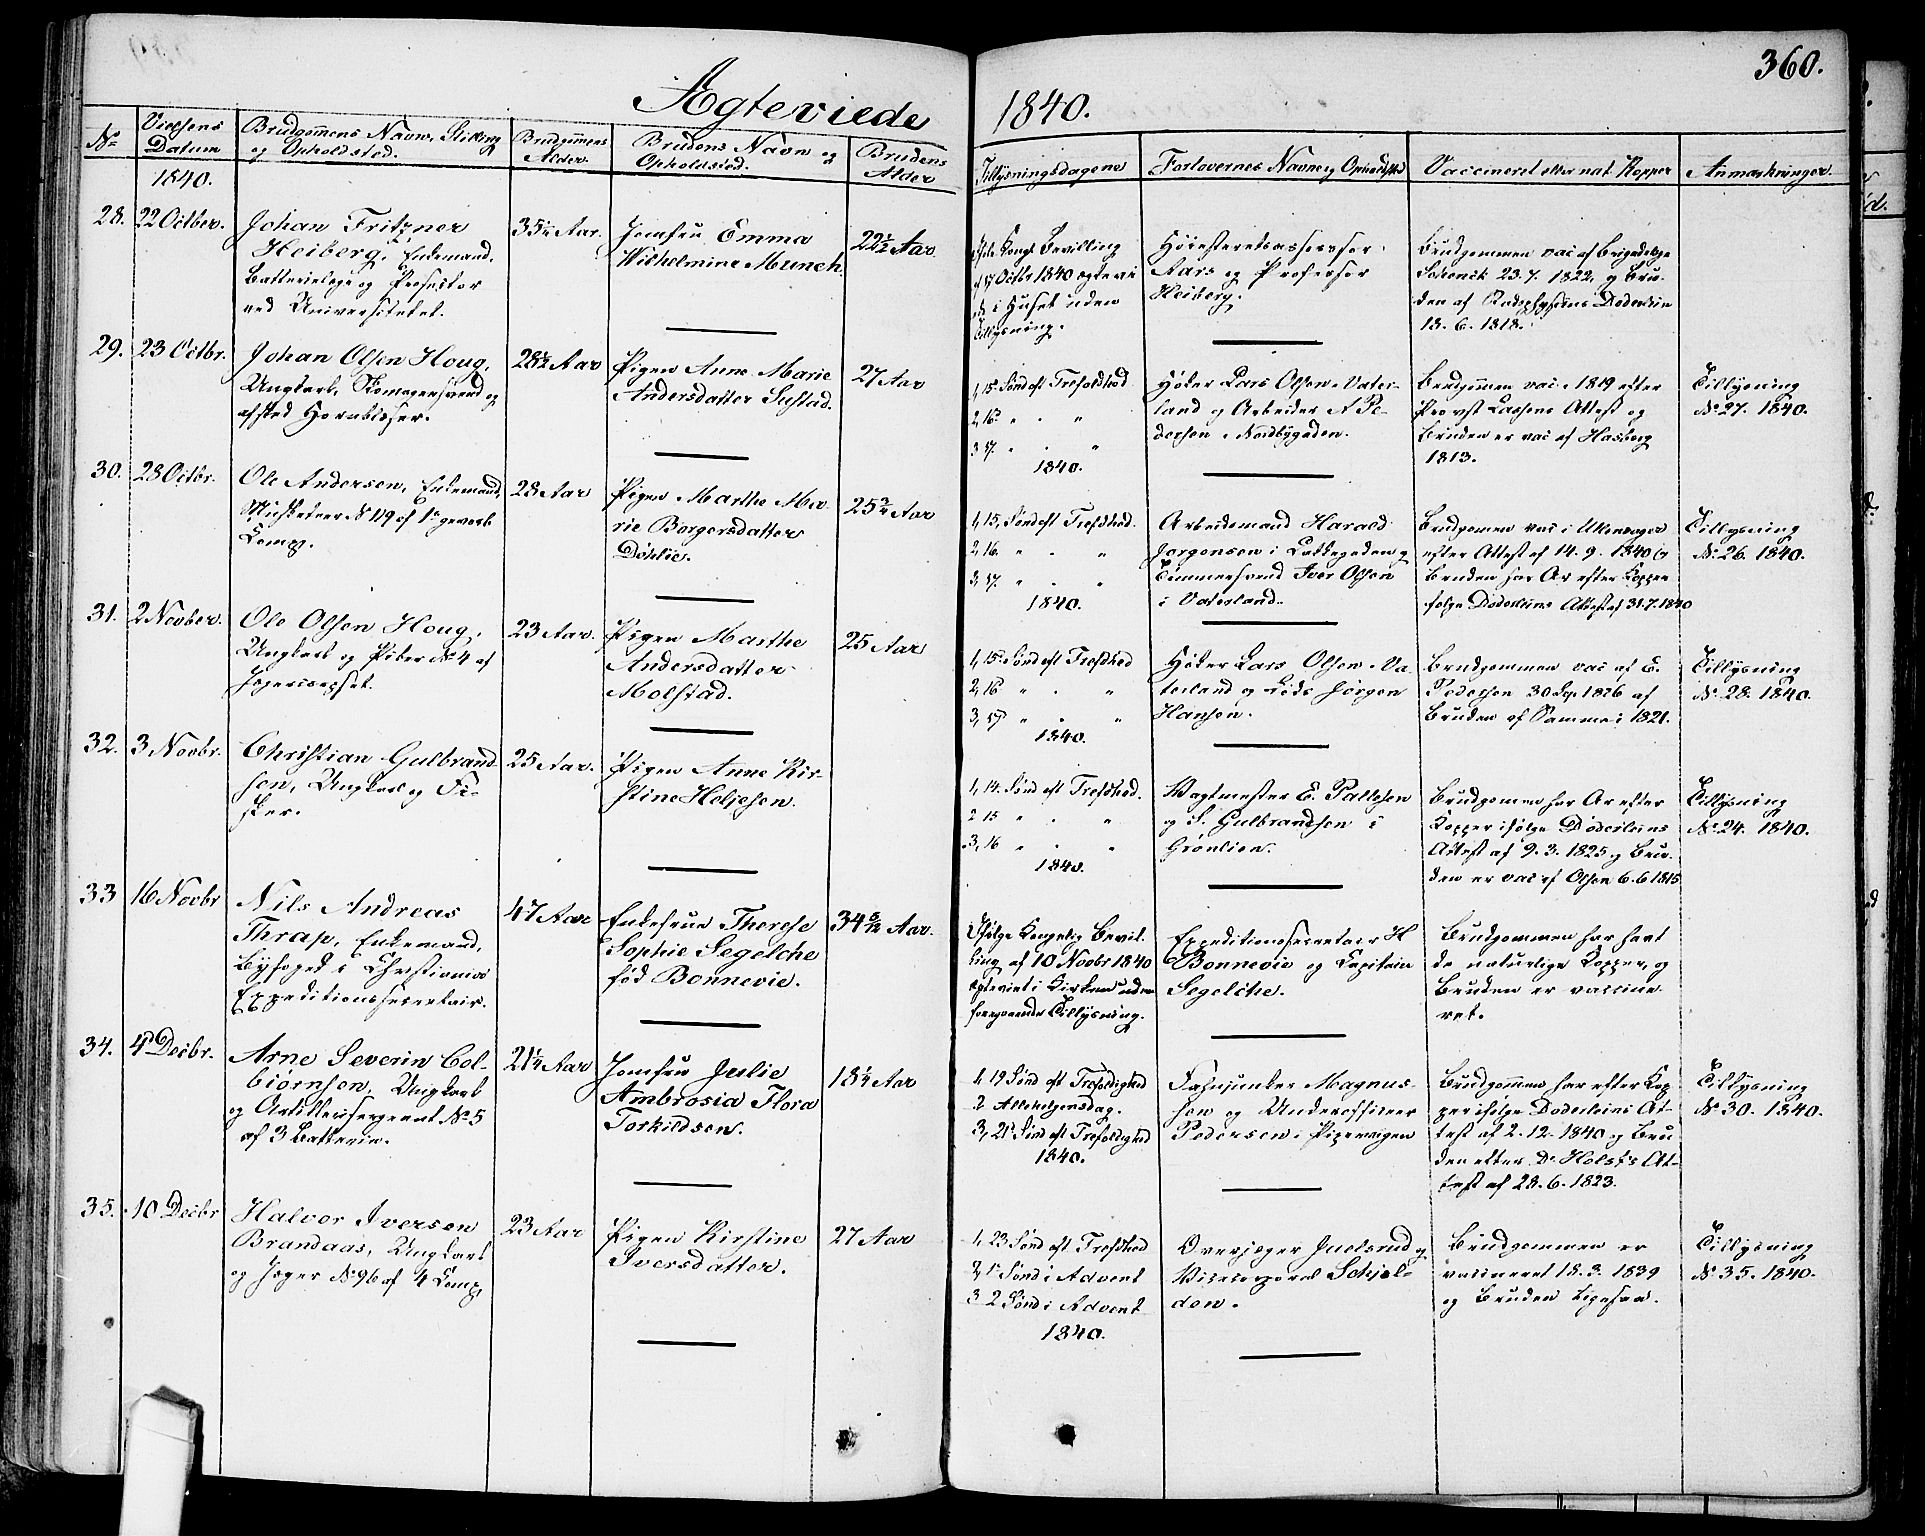 360.
Ægteviede 1840.
No
Vielsens Datum
Brudgommens Navn, Stilling og Opholdsted.
Brudgommens Alder.
Brudens Navn og Opholdsted.
Brudens Alder
Tillysningsdagene
Forlovernes Navne og Opholdsted
Vaccineret eller nat. Kopper
Anmærkninger.
1840.
28. 22 Octber.
Johan Fritzner
Heiberg, Enkemand,
Batterielæge og Prosector
ved Universitetet.
35 Aar.
Jomfru Emma
Wilhelmine Munch.
22½ Aar
Bevilling
17 Octbr 1840
i Huset uden
Tillysning.
Høiesteretsassessor
Aars og Professor
Heiberg.
Brudgommen vac af Brigadelæge
Schenck 23.7.1822, og Bru-
den af Døderlein
13.6.1818.
29. 23 Octbr.
Johan Olsen Houg,
Ungkarl, Skomagersvend og
afsked Hornblæser.
28½ Aar
Pigen Anne Marie
Andersdatter Sustad.
27 Aar
1, 15. Sønd eft Trefoldhed
2, 16. " . "
3 17. " . "
1840.
Høker Lars Olsen i Vater-
land og Arbeider A Pe-
dersen i Nordbygaden.
Brudgommen vac i 1819 efter
Provst Lassens Attest og
Bruden er vac af Hasberg
1813.
Tillysning
No 27. 1840.
30. 28 Octbr.
Ole Andersen, Enkemand,
Musketeer No 119 af 1e gevorb
Comp.
28 Aar
Pigen Marthe Ma-
rie Borgersdatter
Dæhlie.
25¾ Aar
1, 15, Sønd eft Trefdhed.
2, 16. " . "
3, 17. " . "
1840.
Arbeidsmand Harald
Jørgensen i Lakkegaden og
Tømmersvend Iver Olsen
i Vaterland.
Brudgommen vac i Ullensager
efter Attest af 14.9.1840 og
Bruden har Ar efter Kopper
følge Døderleins Attest af 31.7.1840
Tillysning
No 26. 1840.
31. 2 Novber.
Ole Olsen Houg,
Ungkarl og Piber No 4 af
Jægercorpset.
23 Aar.
Pigen Marthe
Andersdatter
Molstad.
25 Aar
1, 15. Sønd eft Trefdhed
2, 16 " . "
3, 17 " . "
1840.
Høker Lars Olsen i Va-
terland og Jørgen
Hansen.
Brudgommen vac af E.
Pedersen 30 Sep. 1826 af
Bruden af Samme i 1821.
Tillysning
No 28. 1840.
32. 3 Novbr.
Christian Gulbrand-
sen, Ungkarl og Fi-
sker.
25 Aar.
Pigen Anne Kir-
stine Heljesen.
1, 14. Sønd eft Trefdhed.
2 15 " . "
3, 16 " . "
1840.
Vagtmester E. Pallesen
og S. Gulbrandsen i
Grønlien.
Brudgommen har Ar efter
Kopper ifølge Døderleins
Attest af 9.3.1825 og Bru-
den er vac af Olsen 6.6 1815
Tillysning
No 24. 1840.
33 16 Novbr
Nils Andreas
Thrap, Enkemand,
Byfoged i Christiania
Expeditionssecretair.
47 Aar
Enkefrue Therese
Sophie Segelche
fød Bonnevie.
34 5/12 Aar.
Ifølge Kongelig Bevil-
ling af 10 Novbr 1840
egteviet i Kirken uden
foregaaende Tillysning.
Expeditionssecretair H
Bonnevie og Capitain
Segelche.
Brudgommen har havt
de naturlige Kopper, og
Bruden er vaccine-
ret.
34. 4 Decbr.
Arne Severin Col-
biørnsen, Ungkarl
og Artillerisergeant No 5
af 3 Batterie.
21¼ Aar
Jomfru Julie
Ambrosia Flora
Torkildsen.
18¼ Aar
1, 19 Sønd eft Trefoldighed
2 Allehelgensdag.
3, 21 Sønd eft Trefoldighed
1840.
Fahnjunker Magnus-
sen og Underofficeer
Pedersen i Pipervigen
Brudgommen har efter Kop-
per ifølge Døderleins At-
test af 2.12.1840 og Bru
den efter Dr Holst's At-
test af 28.6.1823.
Tillysning
No 30. 1840.
35. 10 Decbr
Halvor Iversen
Brandaas, Ungkarl
og Jæger No 96 af 4 Comp,
23 Aar
Pigen Kirstine
Iversdatter.
27 Aar
1, 23 Sønd eft Trefdhed
2, 1 Sønd i Advent
3 2 Sønd i Advent
1840.
Overjæger Juelsrud og
Vicecorporal Schjel-
den.
Brudgommen er
vaccineret 18.3.1839
og Bruden ligesaa.
Tillysning
No 35. 1840.